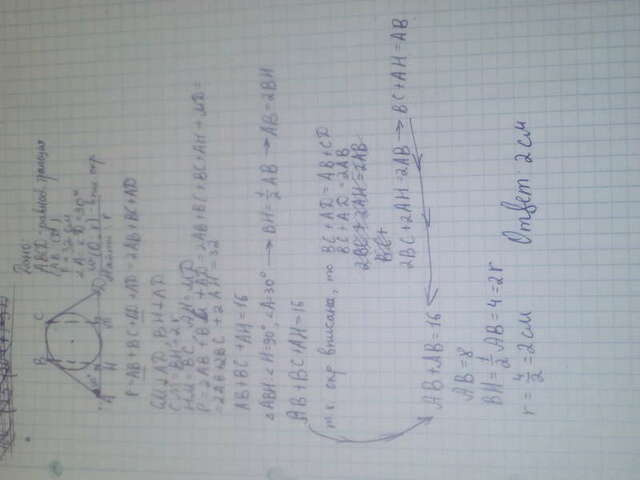 Дано:
ABCD-равноб. трапеция
AB=CD
P=32 см
∠A=∠D=30°
w(O, r) - впис. окр
Найти: r
B C
A H M D
P=AB+BC+CD+AD=2AB+BC+AD
CM ⊥ AD, BH ⊥ AD
CM=BH=2r
HM=BC, AH=MD
P=2AB+BC+AD=2AB+BC+BC+AH+MD=
=2AB+2BC+2AH=32
AB+BC+AH=16
△ABH: ∠H=90°, ∠A=30° → BH=1/2 AB → AB=2BH
AB+BC+AH=16
т.к. окр вписана, то BC+AD=AB+CD
BC+AD=2AB
2BC+2AH=2AB
BC+
2BC+2AH=2AB → BC+AH=AB
AB+AB=16
AB=8
BH=1/2 AB=4=2r
r=4/2=2см
Ответ: 2 см